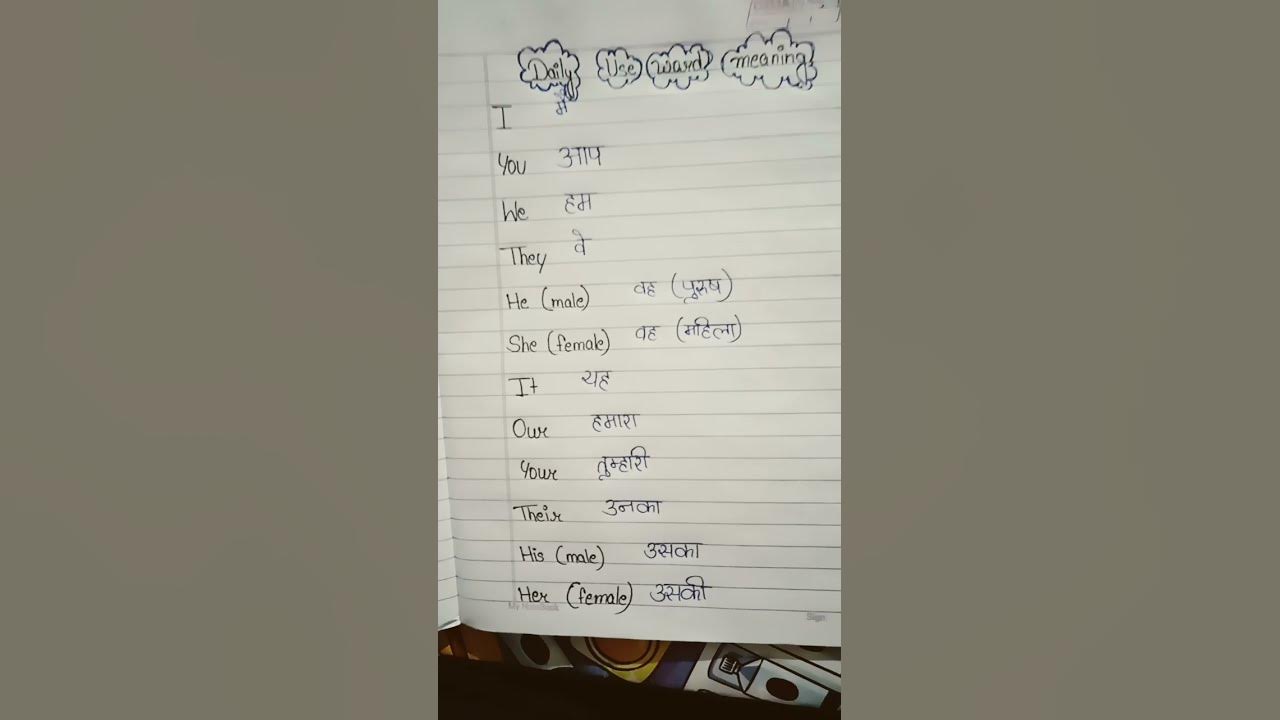 Daily Use word meaning
I मैं
You आप
We हम
They वे
He (male) वह (पुरुष)
She (female) वह (महिला)
It यह
Our हमारा
Your तुम्हारी
Their उनका
His (male) उसका
Her (female) उसकी
My NoteBook
Sign